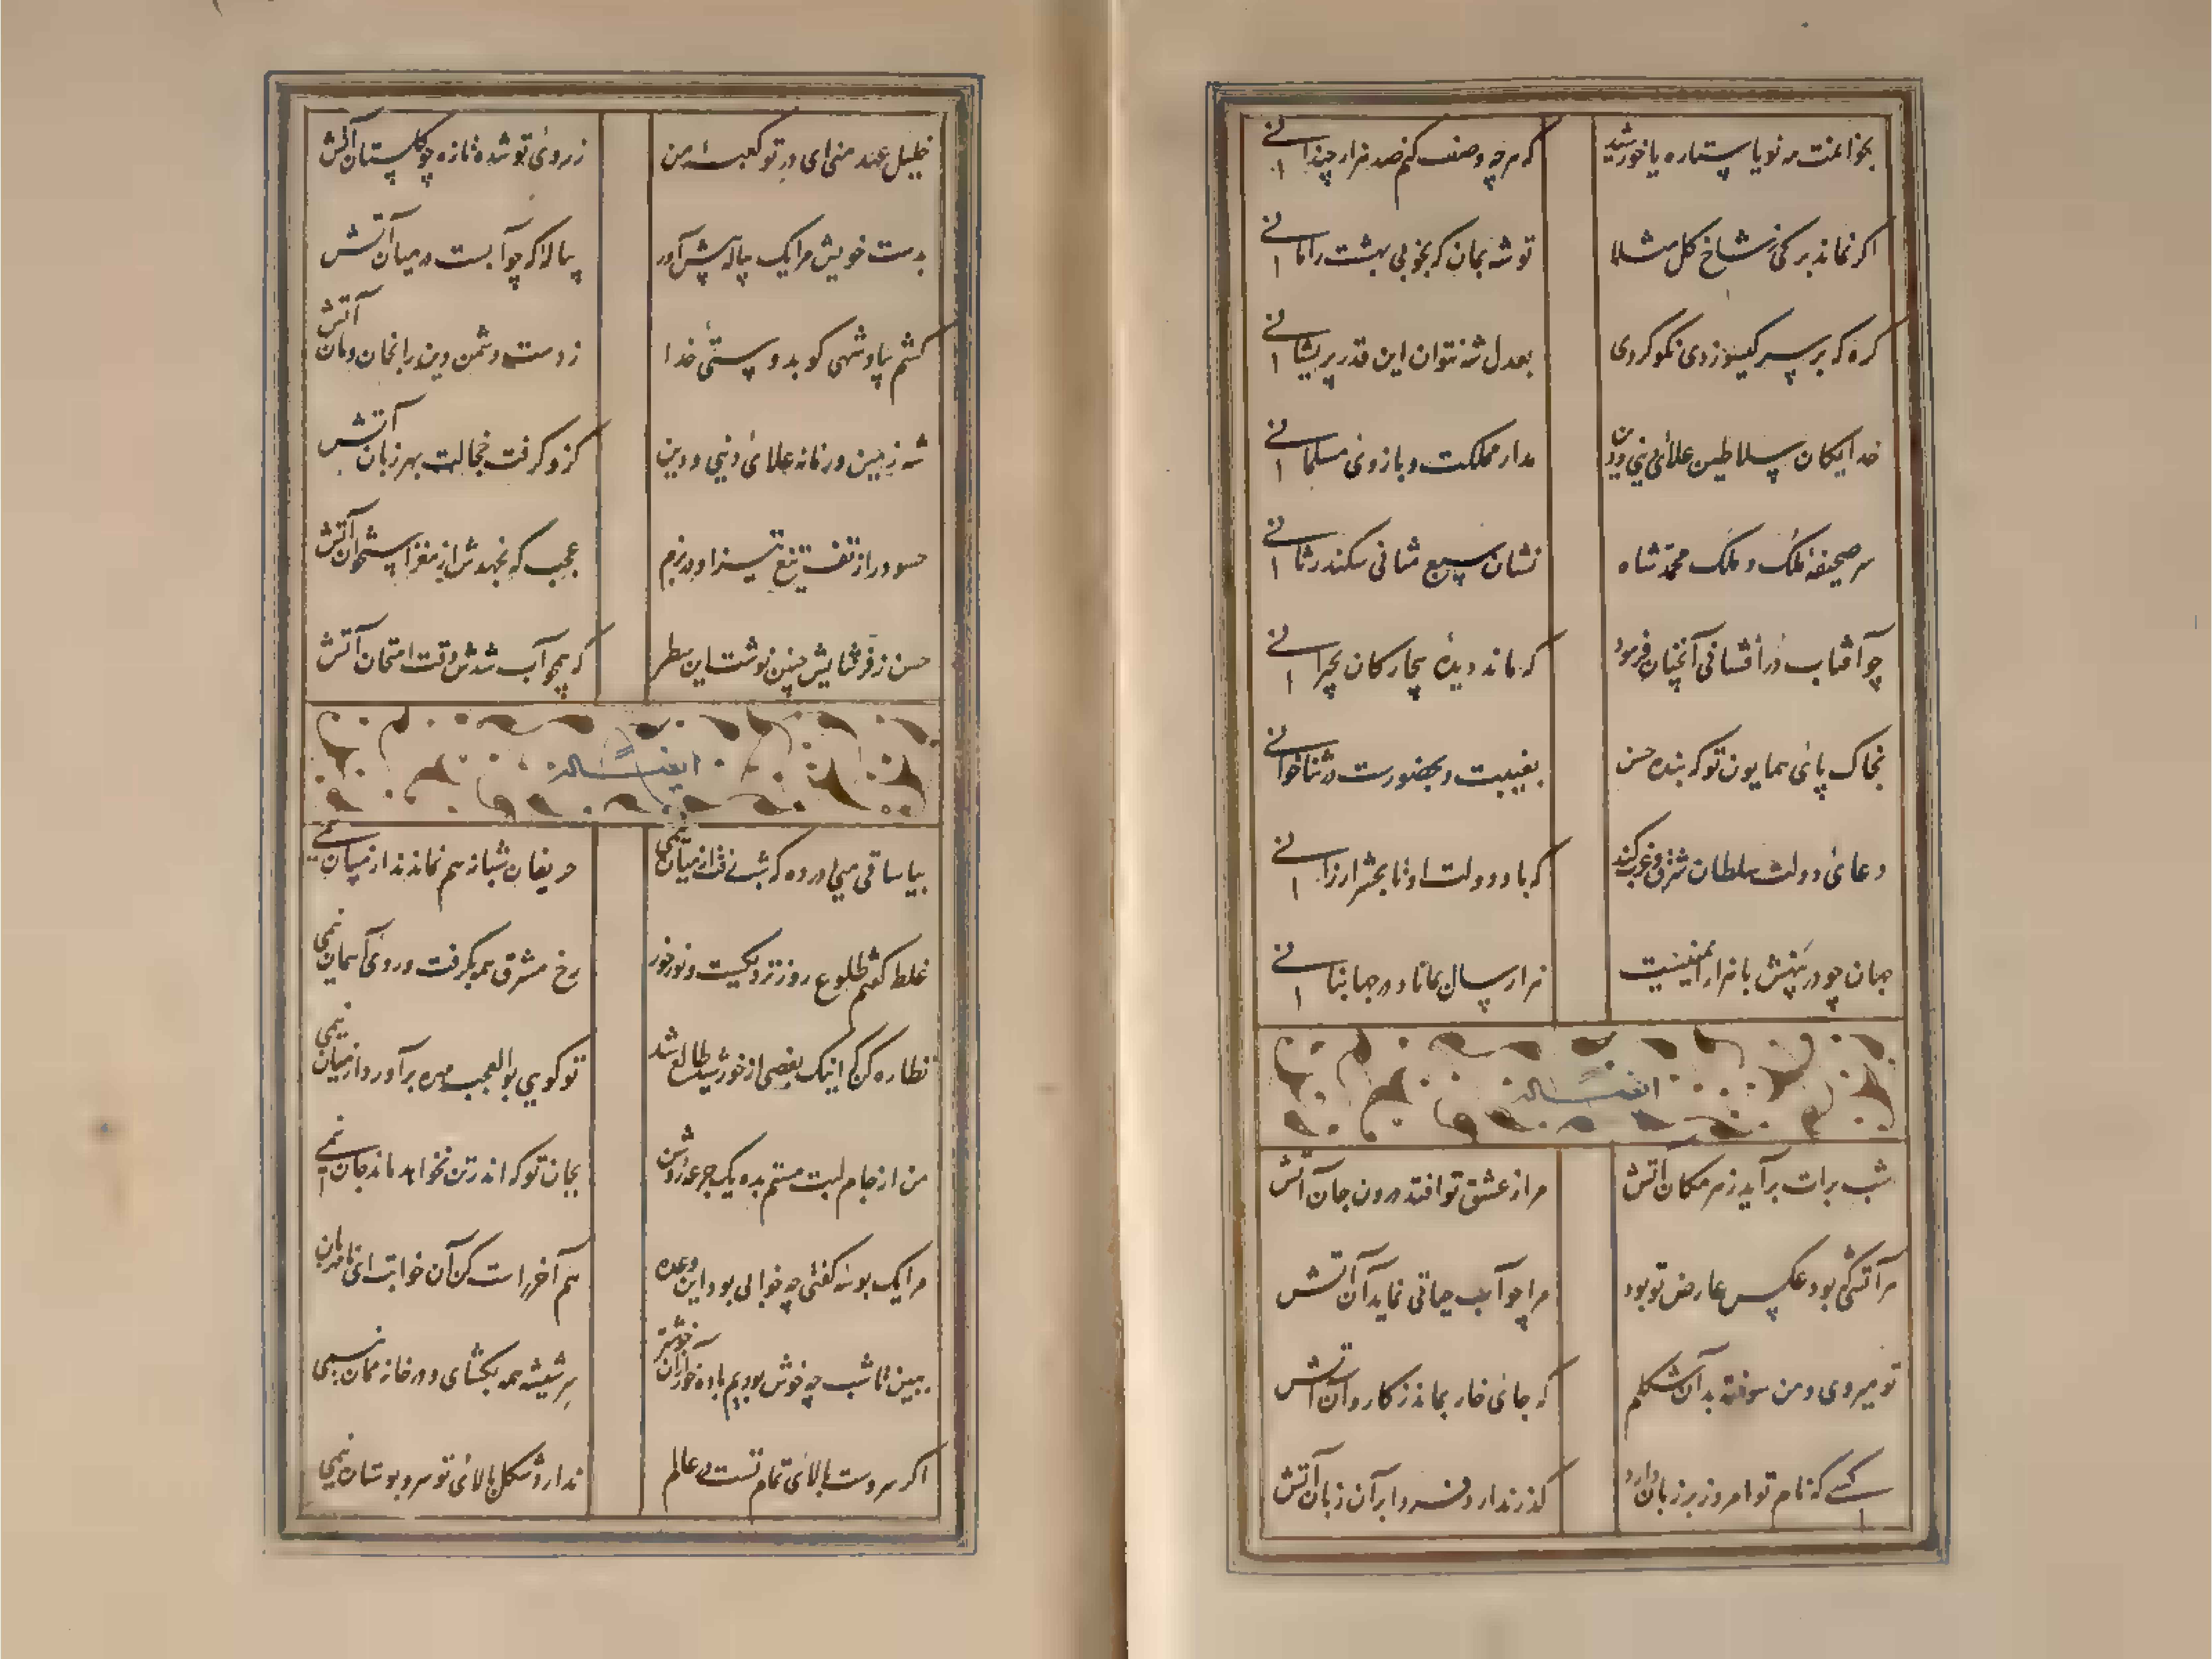 بخوانمت مه نو یا ستاره یا خورشید که هرچه وصف کنم صد هزار چندانے
اگر نماند برگی ز شاخ گل مثلا تو شه بمان که بخوبی بهشت رامانے
گره که بر سر گیسو زدی نکو کردی بعدل شه نتوان این قدر پریشانے
خدایگان سلاطین علائی دنیی و دین مدار مملکت و بازوی مسلمانے
سر صحیفه ملک و ملک محمد شاه نشان سبع مثانی سکندر ثانے
چو آفتاب در افشانی آنچنان فرمود که ماند دیدهٔ بیچارکان بحیرانے
بخاک پای همایون تو که بنده حسن بغیبت و بحضورست در ثنا خوانے
دعای دولت سلطان شرق و غرب کند که باد دولت او تا بحشر ارزانے
جهان چو در پنهش با هزار امنیت هزار سال بماناد در جهانبانے
ایضا له
شب برات برآید ز هر مکان آتش مرا ز عشق تو افتد درون جان آتش
هر آتشی که بود عکس عارض تو بود مرا چو آب حیاتی نماید آن آتش
تو میروی و من سوخته بدان شکلم که جای خار بماند ز کاروان آتش
کسے که نام تو امروز بر زبان دارد گذر ندارد فردا بر آن زبان آتش
خلیل عهد منی ای در تو کعبهٔ من ز روی تو شده تازه چو گلستان آتش
بدست خویش مرا یک پیاله پیش آور پیاله که چو آبست در میان آتش
کشم بیاد شهی کو بدوستیٔ خدا ز دست دشمن دین را بخان و مان آتش
شه زمین و زمانه علائی دنیی و دین کزو گرفت خجالت بهر زبان آتش
حسود را ز تف تیغ تیز او در رزم عجب که بجهدش از مغز استخوان آتش
حسن ز فر ثنایش چنین نوشت این سطر که همچو آب شدش وقت امتحان آتش
ایضا له
بیا ساقی میی در ده که شب رفت از میان نیمی حریفان شبانه هم نماندند از میان نیمے
غلط گفتم طلوع روز نزدیکست و نور خور رخ مشرق همه بگرفت و روی آسمان نیمی
نظاره کن که اینک بعضی از خورشید طالع شد تو گویی بوالعجب مهره برآورد از میان نیمی
من از جام لبت مستم بده یک جرعه روشن بجان تو که اندر تن نخواهد ماند جان نیمے
مرا یک بوسه گفتی چه خوابی بود این وعده هم آخر راست کن آن خوابت ای نامهربان
ببین تا شب چه خوش بودیم باده خور از آن خوشتر سر شیشه همه بگشای و در خانه ممان نیمی
اگر سروست بالای تمام تست در عالم ندارد شکل بالای تو سرو بوستان نیمی